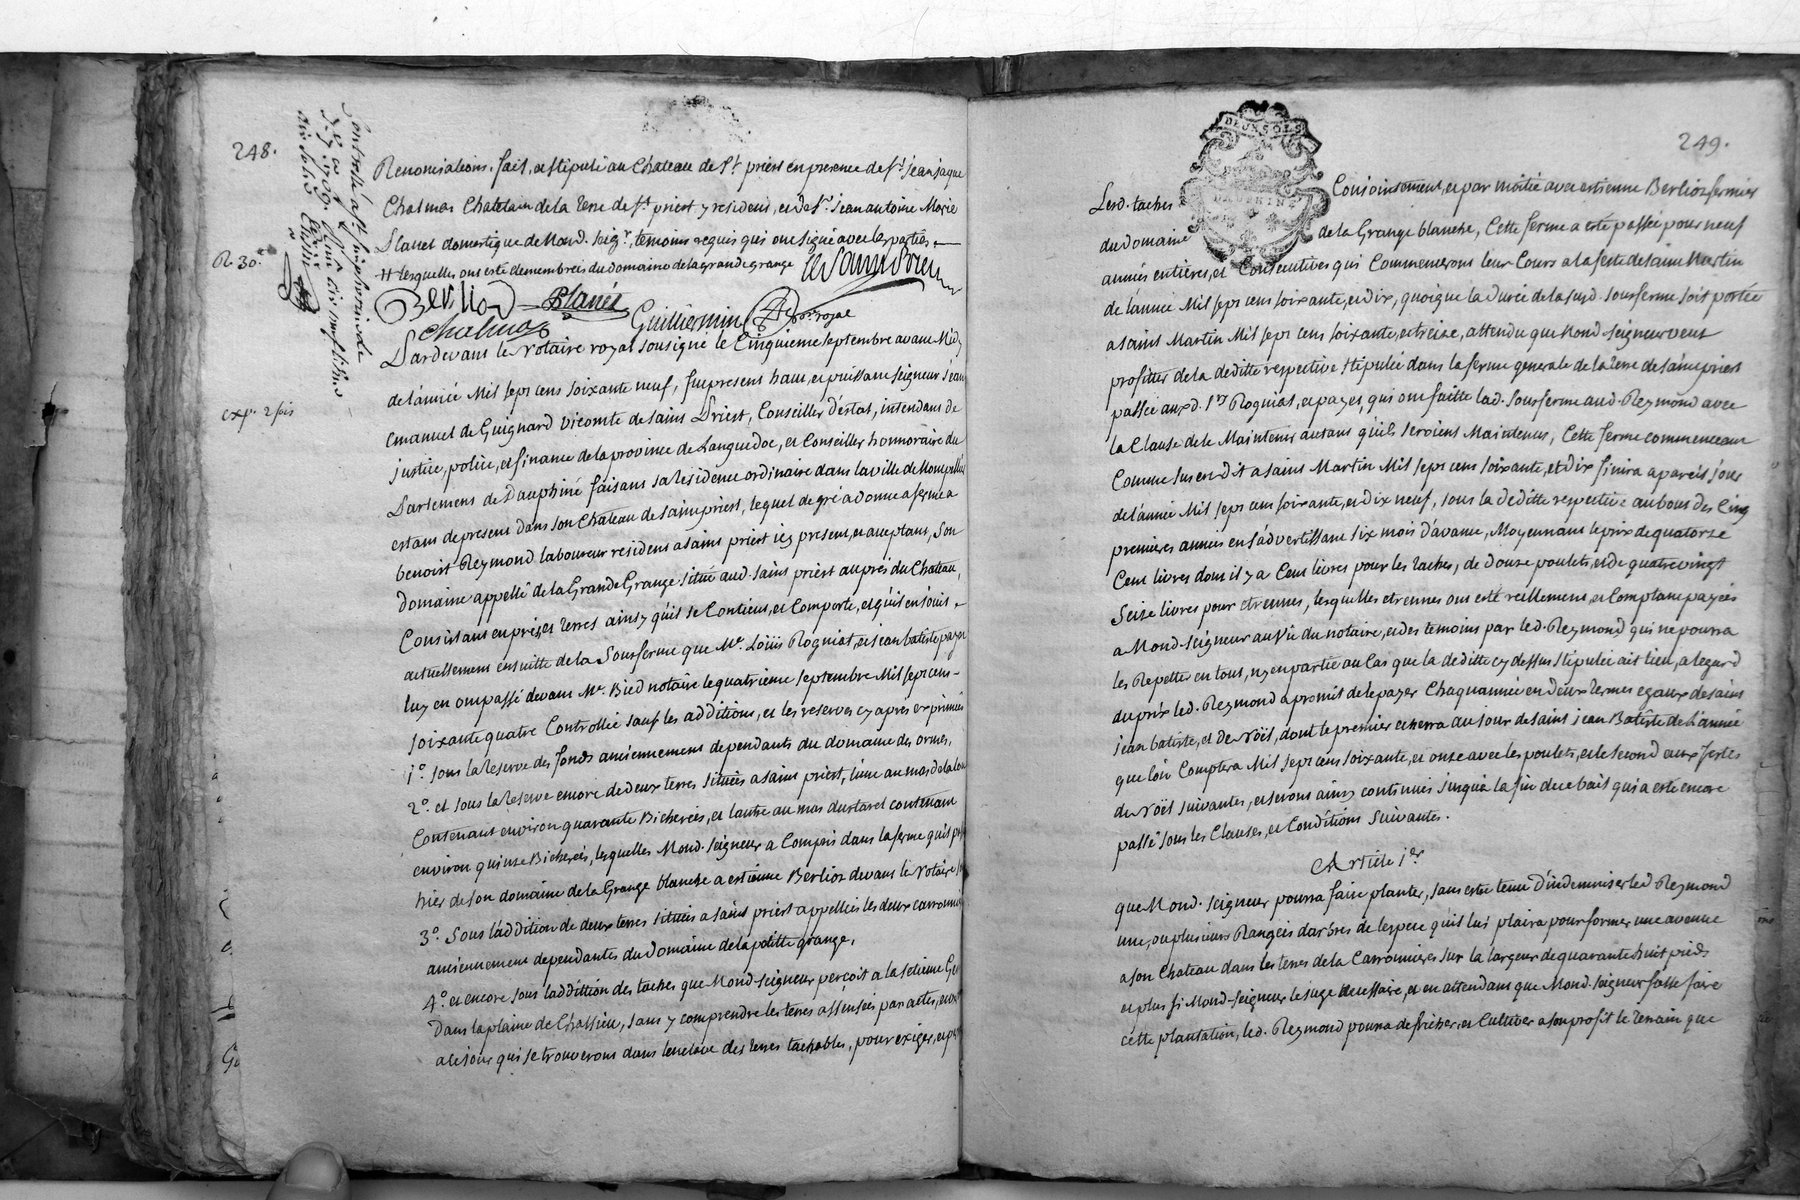 248.
Renonciations. fait, et stipulé au Chateau de St. priest en presence de Sr. jean jaque
Chalmas Chatelain de la terre de St. priest y resident, et de Sr. jean antoine Marie
Planet domestique de Mond. seigr. temoins requis qui ont signé avec les parties
# lesquelles ont esté demembreés du domaine de la grande grange
Berlioz Planet
Chalmas Guillermin nre. royal
R. 30.
exp. 2 fois
Pardevant le Notaire royal soussigné le Cinquieme septembre avant Midy
de l'année Mil sept cens soixante neuf, fut present haut, et puissant seigneur jean
emanuel de Guignard vicomte de saint Priest, Conseiller d'estat, intendant de
justice, police, et finance de la province de Languedoc, et Conseiller honnoraire du
Parlement de Dauphiné faisant sa residence ordinaire dans la ville de Montpellier
estant de present dans son Chateau de saint priest, lequel de gré a donné a ferme a
benoist Reymond laboureur resident a saint priest icy present, et acceptant, son
domaine appellé de la Grande Grange situé aud. saint priest auprés du Chateau,
Consistant en préz, et terres ainsy qu'il se Contient, et Comporte, et qu'il en jouit
actuellement en suitte de la Sousferme que Mr. Loüis Rogniat, et jean batiste payer
luy en ont passé devant Me. Bied notaire le quatrieme septembre Mil sept cens
soixante quatre Controllée sauf les additions, et les reserves cy apres exprimées
1°. sous la Reserve des fonds anciennement dependants du domaine des ormes,
2°. et sous la Reserve encore de deux terres situées a saint priest, l'une au mas de la
Contenant environ quarante Bicherées, et l'autre au mas du contenant
environ quinze Bicherées, lesquelles Mond. seigneur a Compris dans la ferme qu'il
hier de son domaine de la Grange blanche a estienne Berlioz devant le Notaire
3°. Sous l'addition de deux terres situées a saint priest appellées les deux
anciennement dependantes du domaine de la petitte grange,
4°. et encore sous l'addittion des taches que Mond seigneur perçoit a la
Dans la plaine de Chassieu, sans y comprendre les terres assensées par actes,
a ce jour qui se trouveront dans l'enclave des terres tachables, pour exiger,
249.
DEUX SOLS
DAUPHINÉ
Lesd. taches Conjointement, et par moitié avec estienne Berlioz fermier
du domaine de la Grange blanche, Cette ferme a esté passée pour neuf
années entieres, et Consecutives qui Commenceront leur Cours a la feste de saint Martin
de l'année Mil sept cens soixante, et dix, quoique la durée de la susd. sousferme soit portée
a saint Martin Mil sept cens soixante, et treize, attendu que Mond seigneur veut
profitter de la deditte respective stipulée dans la ferme generale de la terre de saint priest
passée auxd. srs. Rogniat, et payer, qui ont faitte lad. sousferme aud. Reymond avec
la Clause de le Maintenir autant qu'ils seroient Maintenus, Cette ferme commenceant
Comme sus en dit a saint Martin Mil sept cens soixante, et dix finira a pareil jour
de l'année Mil sept cens soixante, et dix neuf, sous la deditte respective au bout des Cinq
premieres années en s'advertissant six mois d'avance, Moyennant le prix de quatorze
Cent livres dont il y a Cent livres pour les taches, de douze poulets, et de quatre vingt
seize livres pour etrennes, lesquelles etrennes ont esté reellement, et Comptant payées
a Mond-seigneur au vû du notaire, et des temoins par led. Reymond qui ne pourra
les Repetter en tout, ny en partie au Cas que la deditte cy dessus stipulée ait lieu, a l'egard
du prix led. Reymond a promis de le payer Chaqu'année en deux termes egaux de saint
jean batiste, et de Noël, dont le premier echerra au jour de saint jean Batiste de l'année
que l'on Comptera Mil sept cens soixante, et onze avec les poulets, et le second aux festes
de Noël suivantes, et seront ainsy continués jusqu'a la fin du ce bail qui a esté encore
passé sous les Clauses, et Conditions suivantes.
Article 1er
que Mond. seigneur pourra faire planter, sans estre tenu d'indemniser led Reymond
une, ou plusieurs Rangées d'arbres de l'espece qu'il lui plaira pour former une avenue
a son Chateau dans les terres de la Carronnieres sur la largeur de quarante huit pieds
et plus si Mond-seigneur le juge necessaire, et en attendant que Mond. seigneur fasse faire
cette plantation, led. Reymond pourra defricher, et Cultiver a son profit le terrain que